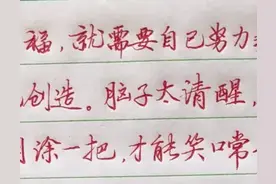 福，就需要自己努力
创造。脑子太清醒，
涂一把，才能笑口常